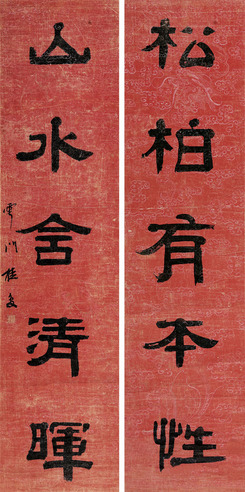 松柏有本性
山水含清暉
雩門桂馥